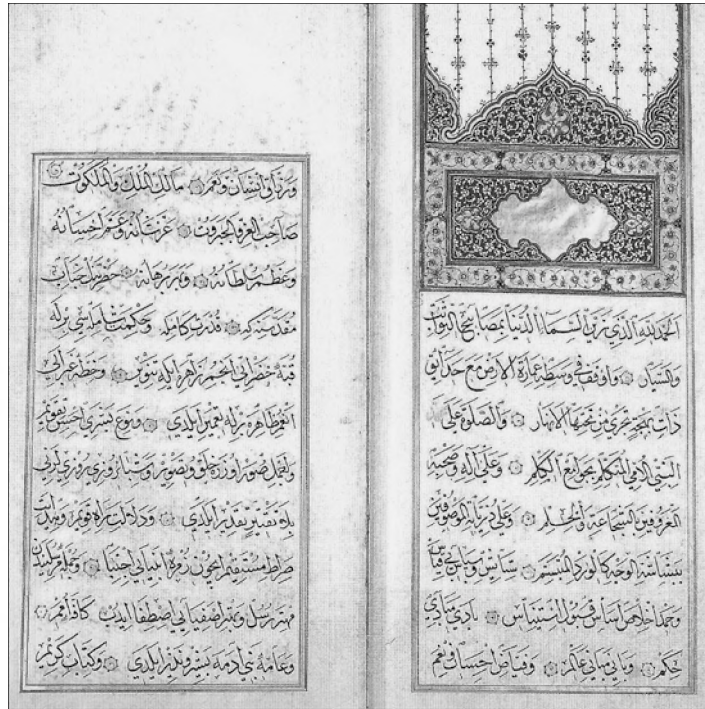 الحمد لله الذي زين السماء الدنيا بمصابيح الثوابت
والسيار واوقف في وسطه عمارة الارض مع حدائق
ذات بهجة تجري من تحتها الانهار والصلوة على
النبي الامي المتكلم بجوامع الكلم وعلى آله وصحبه
المعروفين بالشجاعة والحلم وعلى ذرياته الموصوفين
ببشاشة الوجه كالورد المبتسم سپاس وسپاس بي قياس
وحمد اخلاص اساس قبول استيناس بادي مبادي
حكم وباني مباني عالم وفياض احسان نعم
ورزاق انسان ونعم مالك الملك والملكوت
صاحب العز والجبروت عزت شانه وعم احسانه
وعظم سلطانه وبهر برهانه حضرتلري جناب
مقدسنه كه قدرت كامله وحكمت شامله سي برله
قبه خضرائي انجم زاهر ايله تنوير وخطه غبرائي
انعم ظاهره برله تعمير ايلدي ونوع بشري احسن تقويم
صور اوزره خلق وتصوير روزي
بلا تقتير تقدير ايلدي ودلالت راه قويم وهدايت
صراط مستقيم ايچون زمره انبيايي اجتبا وجمله مرسليندن
مهتر رسل وبهتر اصفيايي اصطفا ايدب كافه امم
وعامه بني آدمه بشير ونذير ايلدي وكتاب كريم